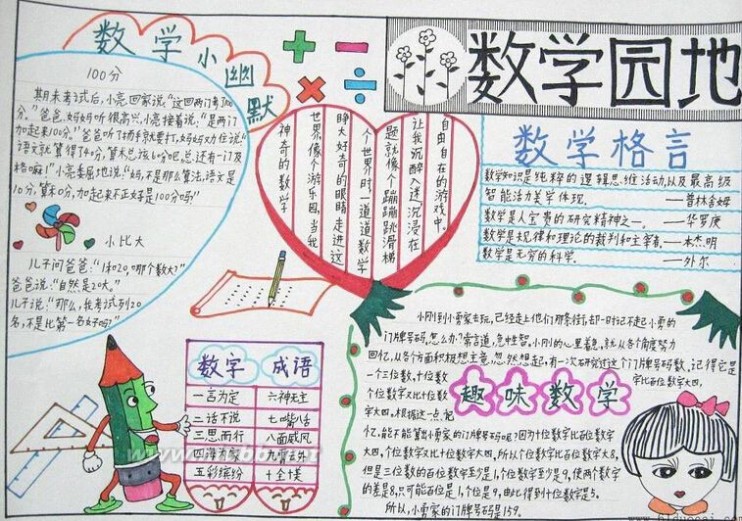 数学园地
数学小幽默
100分
期末考试后,小亮回家说:“这回两门考100
分。”爸爸、妈妈听很高兴,小亮接着说:“是两门
加起来100分。”爸爸听了扬手就要打,妈妈又劝住说:
语文就算得了40分,算术总该60分吧,总还有一门及
格嘛!”小亮委屈地说:“妈,不是那么算法,语文是
10分,算术0分,加起来不正好是100分吗?”
小比大
儿子问爸爸:“1和20,哪个数大?”
爸爸说:“自然是20大。”
儿子说:“那么,我考试列20
名,不是比第一名好吗?”
神奇的数学
世界像个游乐园,当我
睁大好奇的眼睛走进这
个世界时,一道道数学
题就像个蹦蹦跳滑梯
让我沉醉入迷,沉浸在
自由自在的游戏中。
数学格言
数学知识是纯粹的逻辑思维活动,以及最高级
智能活力美学体现。——普林舍姆
数学是人宝贵的研究精神之一。——华罗庚
数学是规律和理论的裁判和主宰者。——本杰明
数学是无穷的科学。——外尔
数字 成语
一言为定 六神无主
二话不说 七嘴八舌
三思而行 八面威风
四海为家 九霄云外
五彩缤纷 十全十美
趣味数学
小刚到小雷家去玩,已经走上他们那条街,却一时记不起小雷的
门牌号码,怎么办?常言道,急中生智。小刚的心里着急,就从各个角度努力
回忆,从各方面积极想主意,忽然想起,有一次研究过这个门牌号码数,记得它是
一个三位数,十位数字比百位数字大四,
个位数字又比十位数
字大四。根据这一点记
忆,能不能算出小雷家的门牌号码呢?因为十位数字比百位数字
大四,个位数字又比十位数字大四,所以个位数字比百位数字大8,
但是三位数的百位数字至少是1,个位数字至少是9,使两个数字
的差是8,只可能百位是1,个位是9,由此得到十位数字是5。
所以,小雷家的门牌号码是159。